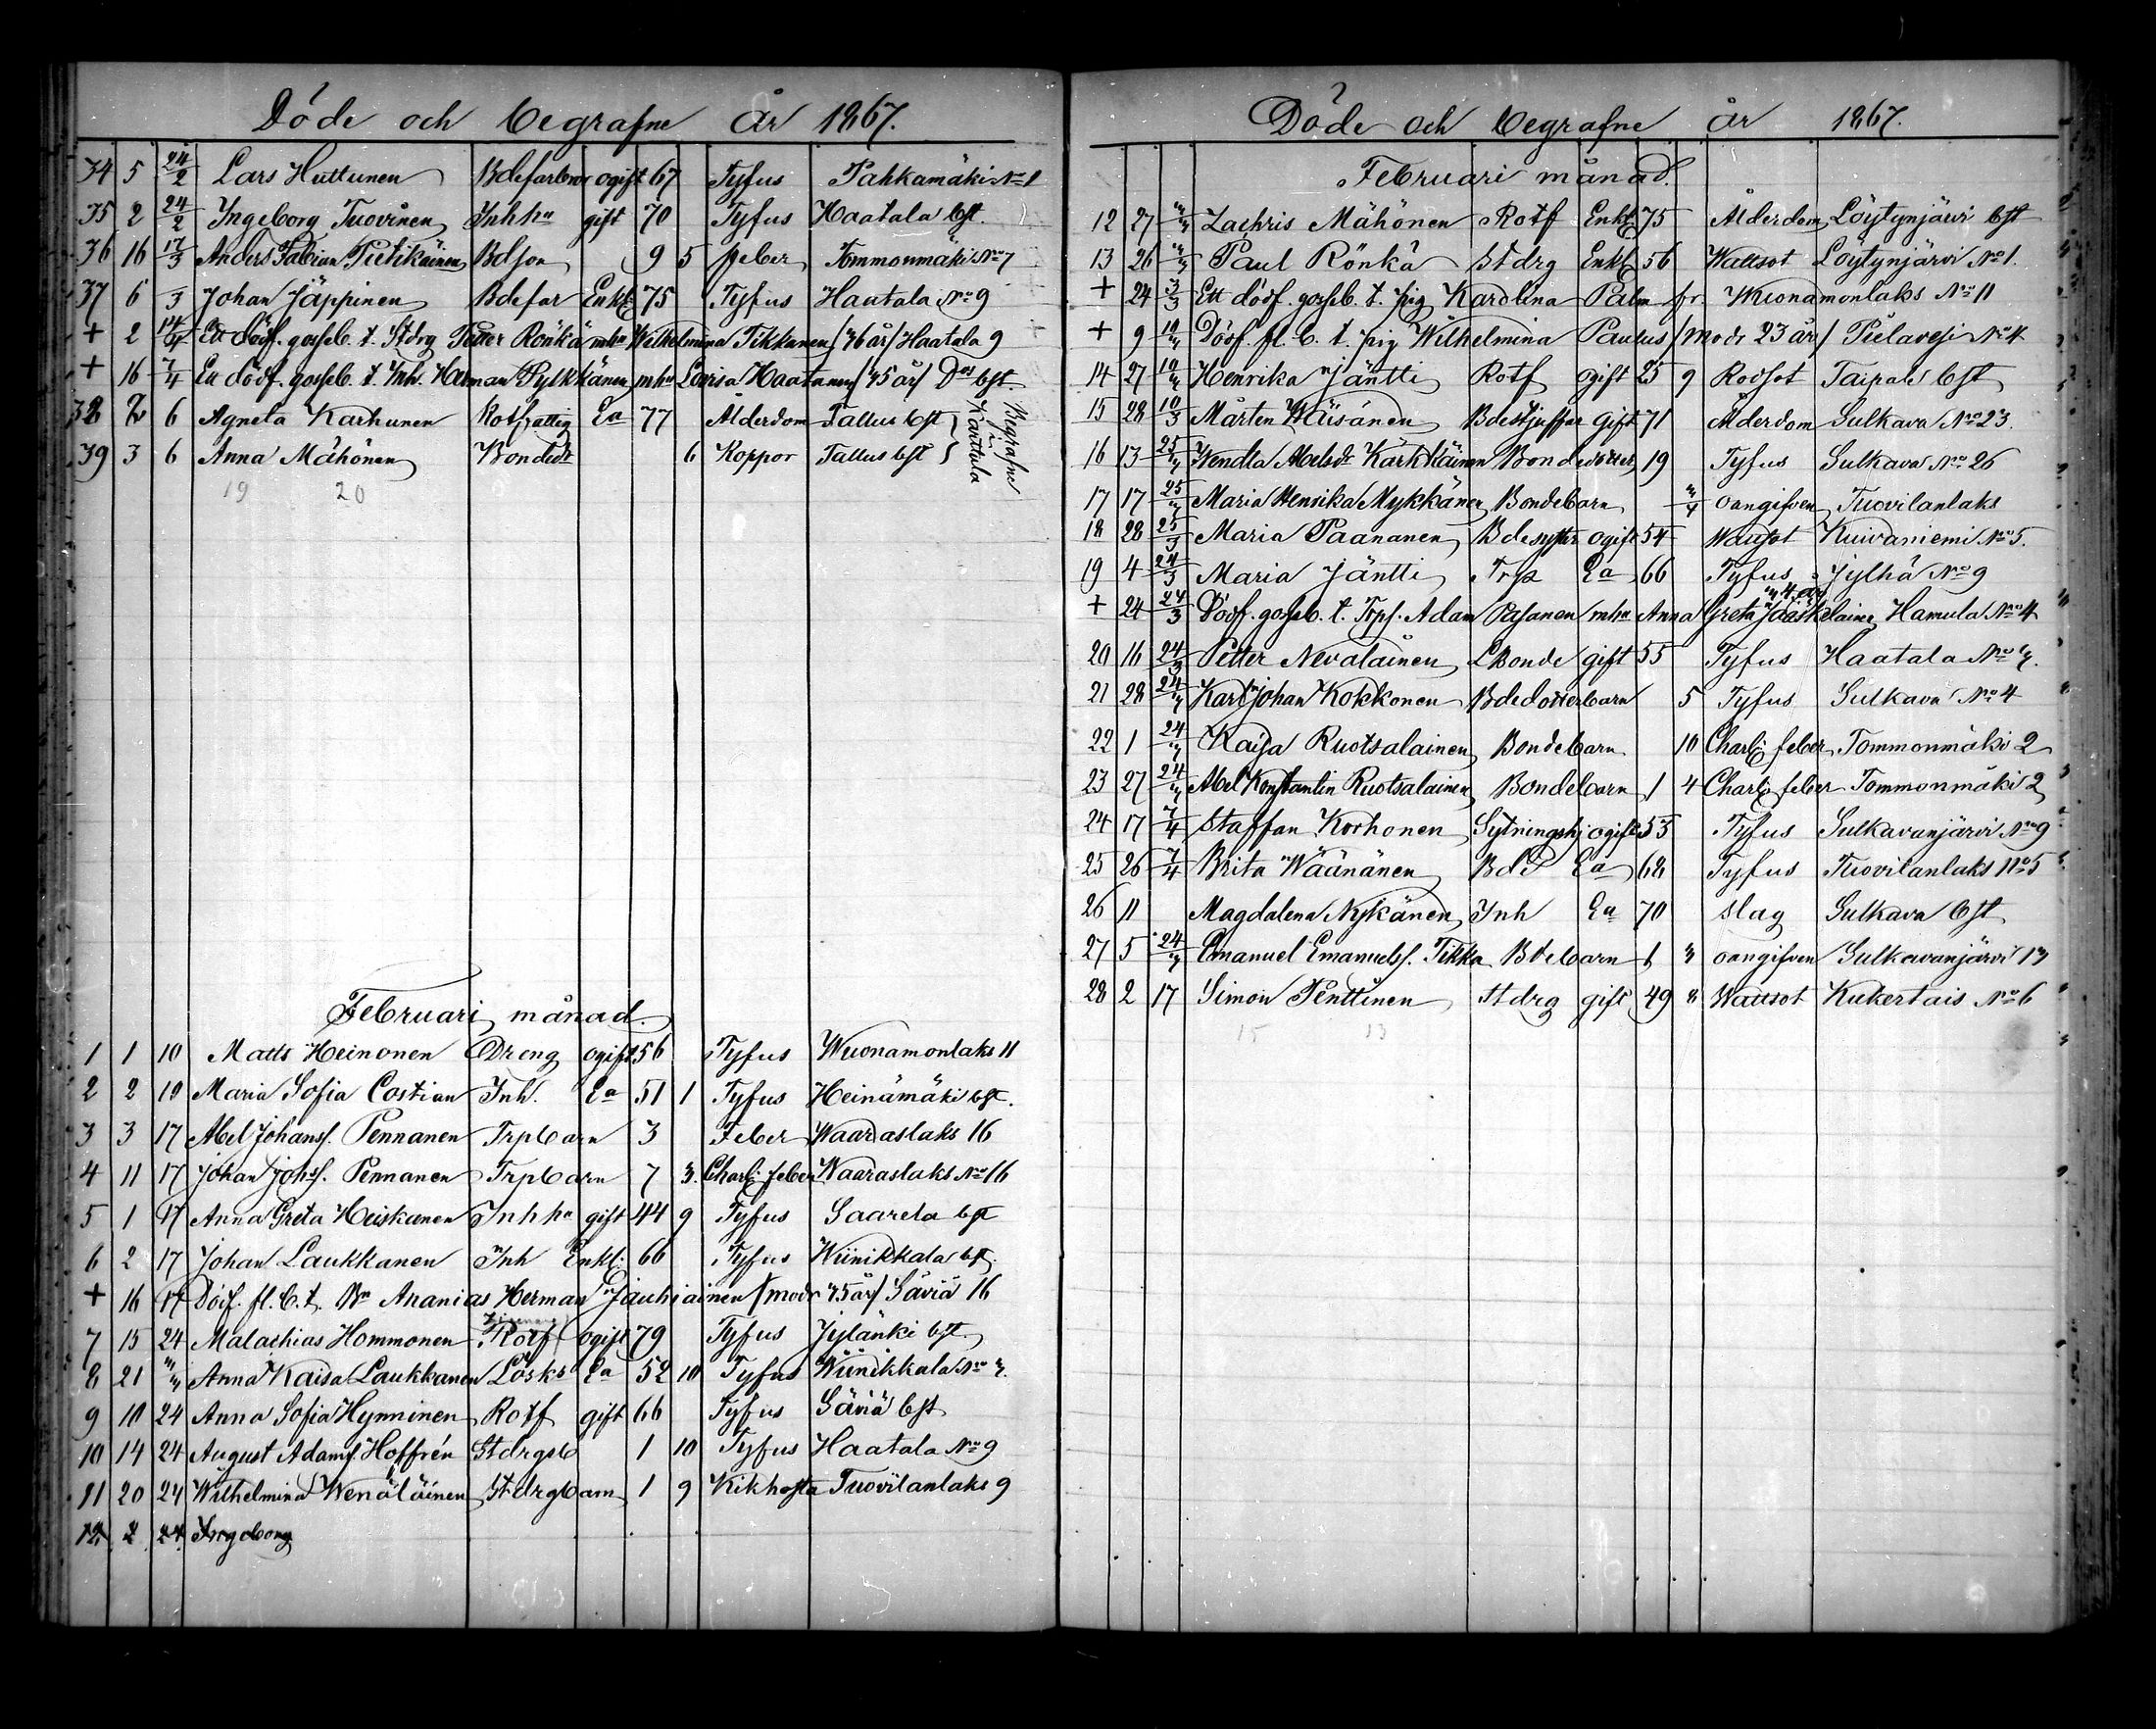 Döde och begrafne år 1867.
34 5 24/2 Lars Huttunen Bdefarbror ogift 67 Tyfus Pahkamäki No 1
35 2 24/2 Ingeborg Tuovinen Inhhu gift 70 Tyfus Haatala bst.
36 16 17/3 Anders Fabian Pietikäinen Bdson 9 5 feber Tommonmäki No 7
37 6 Johan Jäppinen Bdefar Enkl 75 Tyfus Hautala No 9
+ 2 14/4 Ett dödf. gosseb. t. Stdrg Petter Rönkä mhu Wilhelmina Tikkanen / 46 år / Haatala 9
+ 16 7/4 Ett dödf. gosseb. t. Inh. Herman Pylkkänen mhu Lovisa Haatanen / 45 år / Do bst
38 2 6 Agneta Karhunen Rotfattig Ea 77 Ålderdom Tallus bst
39 3 6 Anna Mähönen Bondedr 6 Koppor Tallus bst
Begrafne i Karttula
19 20
Februari månad.
1 1 10 Matts Heinonen Dreng ogift 56 Tyfus Wuonamonlaks 11
2 2 10 Maria Sofia Costian Inh. Ea 51 1 Tyfus Heinämäki bst.
3 3 17 Abel Johanss. Pennanen Trpbarn 3 Feber Waaraslaks 16
4 11 17 Johan Johss. Pennanen Trpbarn 7 3. Charl: feber Waaraslaks No 16
5 1 17 Anna Greta Heiskanen Inhhu gift 44 9 Tyfus Saarela bst
6 2 17 Johan Laukkanen Inh Enkl: 66 Tyfus Wiinikkala bst.
+ 16 17 Döif. fl. b. t. Bn Ananias Herman Jauhiainen / modr 45 år / Säviä 16
7 15 24 Malachias Hommonen Rotf ogift 79 Tyfus Jylänki bst.
8 21 " Anna Kaisa Laukkanen Lösks Ea 52 10 Tyfus Wiinikkala No 3.
9 10 24 Anna Sofia Hynninen Rotf gift 66 Tyfus Säviä bst
10 14 24 August Adamss Hoffrén Stdrgsb 1 10 Tyfus Haatala No 9
11 20 24 Wilhelmina Wenäläinen Stdrgbarn 1 9 Kikhosta Tuovilanlaks 9
12 2 24 Ingeborg
Döde och begrafne år 1867.
Februari månad.
12 27 " Zachris Mähönen Rotf Enkl 75 Ålderdom Löytynjärvi bst
13 26 " Paul Rönkä Stdrg Enkl 56 Wattsot Löytynjärvi No 1.
+ 24 3/3 Ett dödf. gosseb. t. pig Karolina Palm fr. Wuonamonlaks No 11
+ 9 10/3 Dödf. fl. b. t. pig Wilhelmina Paulus / Modr 23 år / Pielavesi No 4
14 27 10/3 Henrika Jäntti Rotf ogift 25 9 Rodsot Taipale bst
15 28 10/3 Mårten Wäisänen Bdestjuffar gift 71 Ålderdom Sulkava No 23
16 13 25/3 Wendla Abelsdr Kärkkäinen Bondedotter 19 Tyfus Sulkava No 26
17 17 25/3 Maria Henrika Mykkänen Bondebarn 3/4 oangifven Tuovilanlaks
18 28 25/3 Maria Paananen Bdesyster ogift 54 Wattsot Kuivaniemi No 5.
19 4 24/3 Maria Jäntti Trp Ea 66 Tyfus Jylhä No 9
+ 24 24/3 Dödf. gosseb. t. Trps. Adam Pasanen mhu Anna Greta Jääskeläinen Hamula No 4
20 16 24/3 Petter Nevalainen LBonde gift 55 Tyfus Haatala No 7.
21 28 24/3 Karl Johan Kokkonen Bdedotterbarn 5 Tyfus Sulkava No 4
22 1 24/3 Kaisa Ruotsalainen Bondebarn 10 Charl: feber Tommonmäki 2
23 27 24/3 Abel Konstantin Ruotsalainen Bondebarn 1 4 Charl: feber Tommonmäki 2
24 17 7/4 Staffan Korhonen Sytningshj ogift 53 Tyfus Sulkavanjärvi No 9
25 26 7/4 Brita Wäänänen Bde Ea 68 Tyfus Tuovilanlaks No 5
26 11 Magdalena Nykänen Inh Ea 70 slag Sulkava bst
27 5 24/3 Emanuel Emanuelss. Tikka Bdebarn 6 " oangifven Sulkavanjärvi 13
28 2 17 Simon Penttinen Stdrg gift 49 " Wattsot Kukertais No 6
15 13